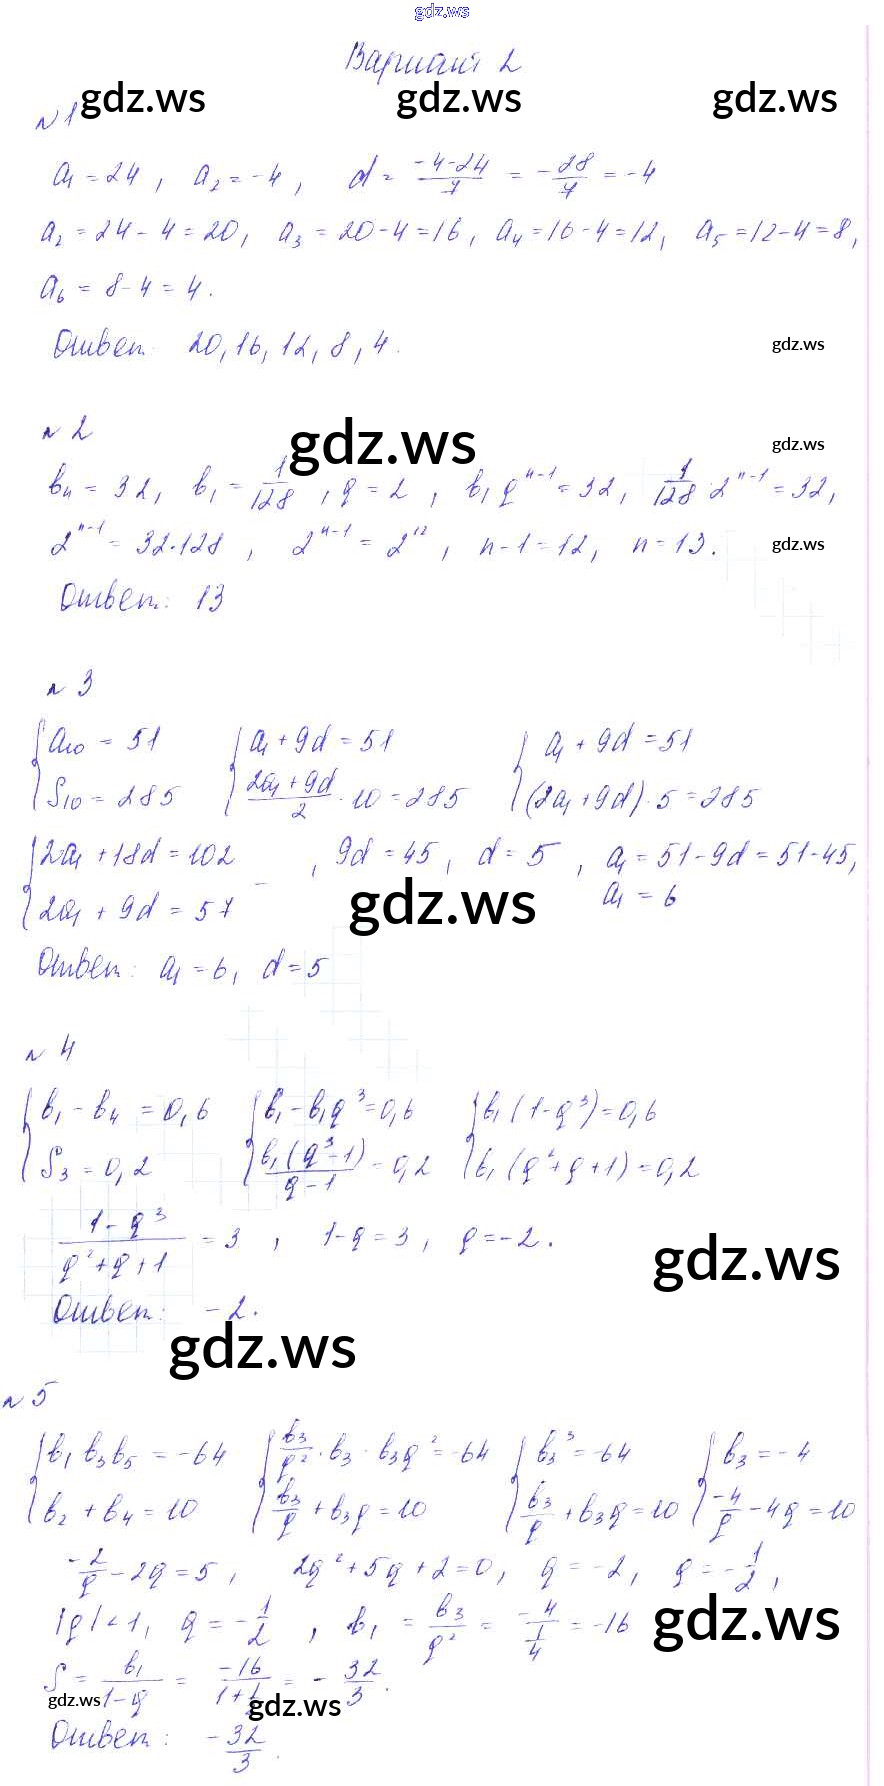 gdz.ws
Вариант 2
gdz.ws gdz.ws gdz.ws
№1
a₁ = 24, a₂ = -4, d = (-4-24)/7 = -28/7 = -4
a₂ = 24-4 = 20, a₃ = 20-4 = 16, a₄ = 16-4 = 12, a₅ = 12-4 = 8,
a₆ = 8-4 = 4.
Ответ: 20, 16, 12, 8, 4.
gdz.ws
№2
gdz.ws gdz.ws
bₙ = 32, b₁ = 1/128, q = 2, b₁qⁿ⁻¹ = 32, 1/128 · 2ⁿ⁻¹ = 32,
2ⁿ⁻¹ = 32·128, 2ⁿ⁻¹ = 2¹², n-1 = 12, n = 13.
gdz.ws
Ответ: 13
№3
{a₁₀ = 51 {a₁ + 9d = 51 {a₁ + 9d = 51
{S₁₀ = 285 {(2a₁ + 9d)/2 · 10 = 285 {(2a₁ + 9d)·5 = 285
{2a₁ + 18d = 102 -, 9d = 45, d = 5, a₁ = 51-9d = 51-45,
{2a₁ + 9d = 57 a₁ = 6
gdz.ws
Ответ: a₁ = 6, d = 5
№4
{b₁ - b₄ = 0,6 {b₁ - b₁q³ = 0,6 {b₁(1-q³) = 0,6
{S₃ = 0,2 {b₁(q³-1)/(q-1) = 0,2 {b₁(q²+q+1) = 0,2
(1-q³)/(q²+q+1) = 3, 1-q = 3, q = -2.
gdz.ws
Ответ: -2.
gdz.ws
№5
{b₁b₃b₅ = -64 {b₃/q² · b₃ · b₃q² = -64 {b₃³ = -64 {b₃ = -4
{b₂ + b₄ = 10 {b₃/q + b₃q = 10 {b₃/q + b₃q = 10 {-4/q - 4q = 10
-2/q - 2q = 5, 2q² + 5q + 2 = 0, q = -2, q = -1/2,
|q| < 1, q = -1/2, b₁ = b₃/q² = -4/(1/4) = -16
gdz.ws
S = b₁/(1-q) = -16/(1+1/2) = -32/3.
gdz.ws gdz.ws
Ответ: -32/3.